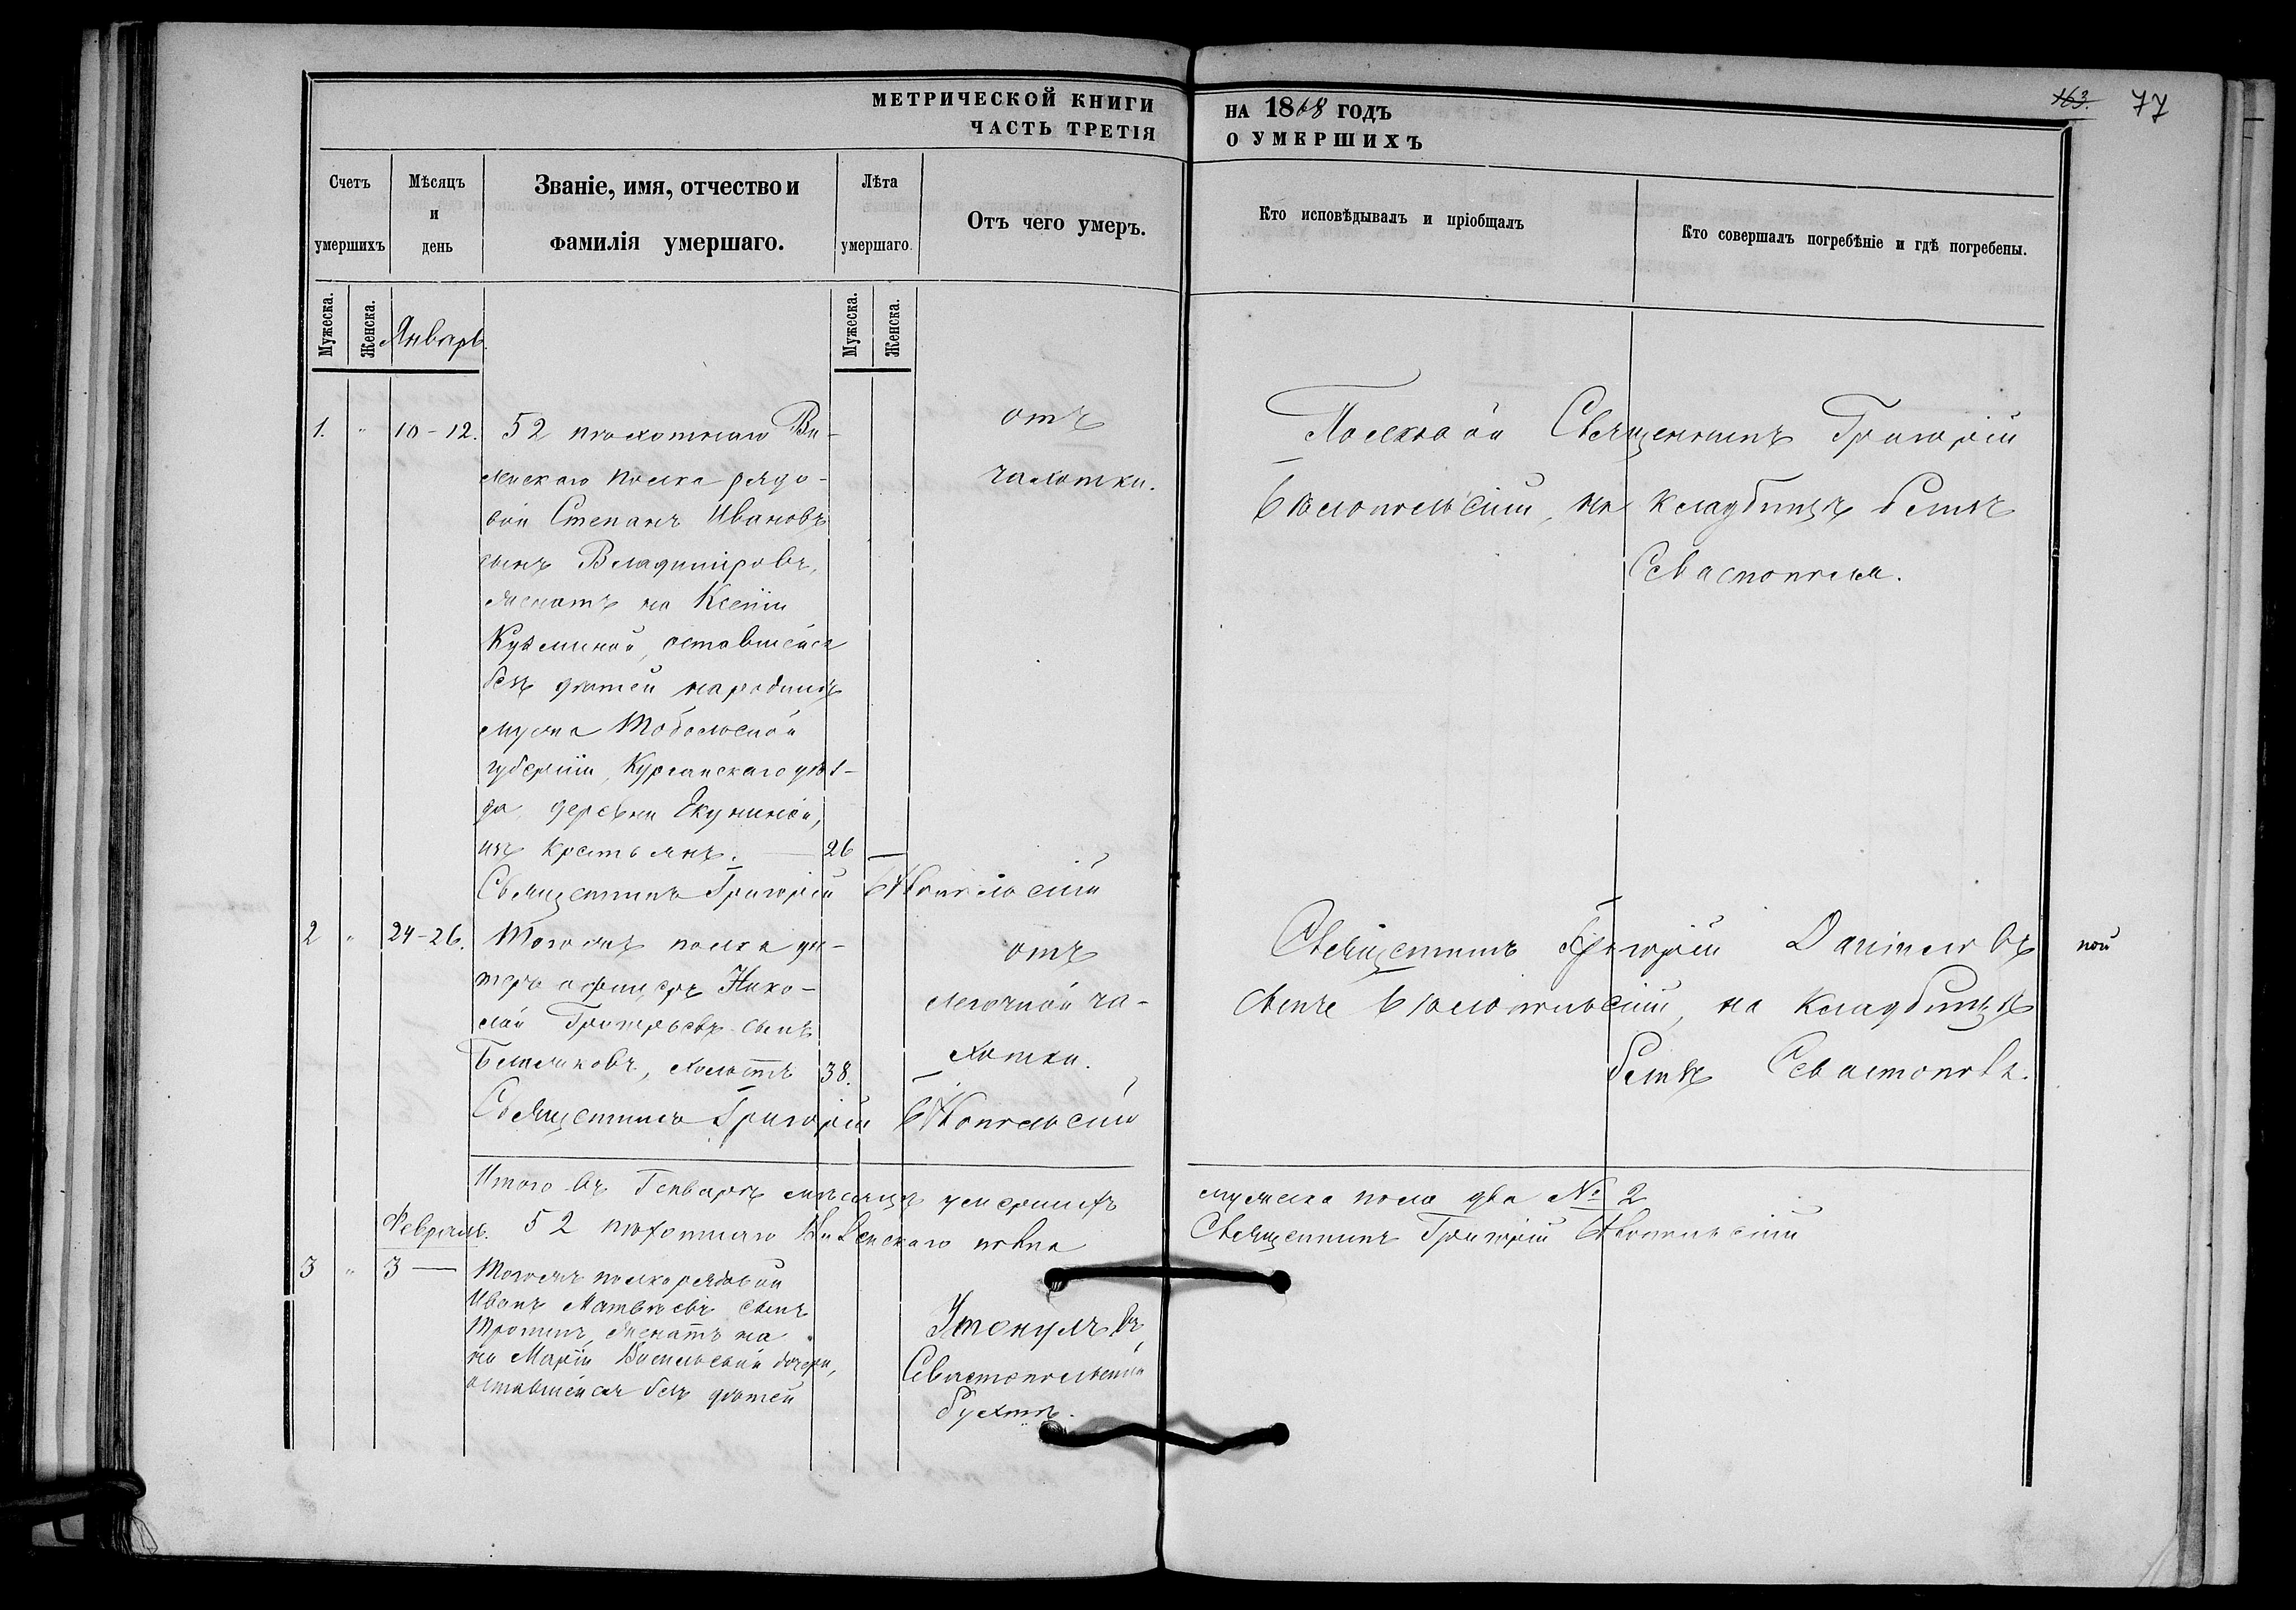 МЕТРИЧЕСКОЙ КНИГИ
ЧАСТЬ ТРЕТІЯ
НА 1868 ГОДЪ
О УМЕРШИХЪ
163. 77
Счетъ умершихъ
Мѣсяцъ и день
Званіе, имя, отчество и
фамилія умершаго.
Лѣта умершаго.
Отъ чего умеръ.
Кто исповѣдывалъ и пріобщалъ
Кто совершалъ погребѣніе и гдѣ погребены.
Мужеска.
Женска.
Январь.
Мужеска.
Женска.
1. " 10-12. 52 пѣхотнаго Ви-
ленскаго полка рядо-
вой Степанъ Ивановъ
сынъ Владиміровъ,
женатъ на Ксеніи
Кузминой, оставшейся
безъ дѣтей на родинѣ
мужа Тобольской
губерніи, Курганскаго уѣз-
да, деревни
изъ крестьянъ. 26 —
отъ
чахотки.
Полковой Священникъ Григорій
Бѣлопольскій, на кладбищѣ близъ
Севастополя.
Священникъ Григорій Бѣлопольскій
2 " 24-26. Тогожъ полка ун-
теръ офицеръ Нико-
лай Григорьевъ сынъ
холостъ 38.
отъ
легочной ча-
хотки.
Священникъ Григорій
Бѣлопольскій, на кладбищѣ
близъ Севастополя.
Священникъ Григорій Бѣлопольскій
Итого въ Генварѣ мѣсяцѣ умершихъ мужеска пола два № 2
Февраль. 52 пѣхотнаго Виленскаго полка Священникъ Григорій Бѣлопольскій
3 " 3 — Тогожъ полка рядовой
Иванъ Матвѣевъ сынъ
женатъ на
на Маріи Васильевой дочери,
оставшейся безъ дѣтей
Утонулъ въ
Севастопольской
бухтѣ.